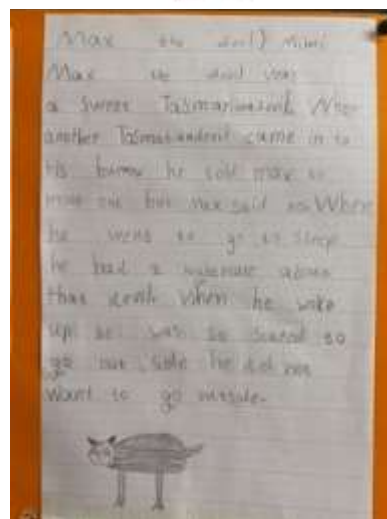 Max the devil) Mimi
Max the devil was
a sweet Tasmanian devil. When
another Tasmanian devil came in to
his burrow he told max to
move out but Max said no. When
he went to go to sleep
he had a nightmare about
that devil. When he woke
up he was so scared to
go out side he did not
want to go outside.